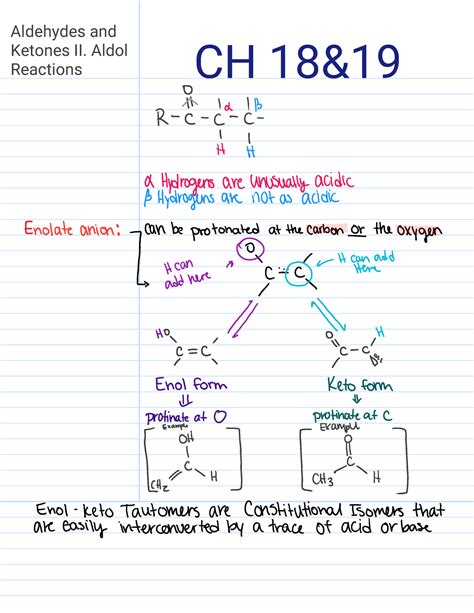 Aldehydes and
Ketones II. Aldol
Reactions
CH 18&19
O
α β
R-C-C-C-
H H
α Hydrogens are unusually acidic
β Hydrogens are not as acidic
Enolate anion: can be protonated at the carbon or the oxygen
O
H can
add here
C=C
H can add
Here
HO
C=C
O
H
C-C
Enol form
Keto form
protinate at O
protinate at C
Example
Example
OH
C
CH2
H
O
C
CH3
H
Enol-Keto Tautomers are Constitutional Isomers that
are easily interconverted by a trace of acid or base